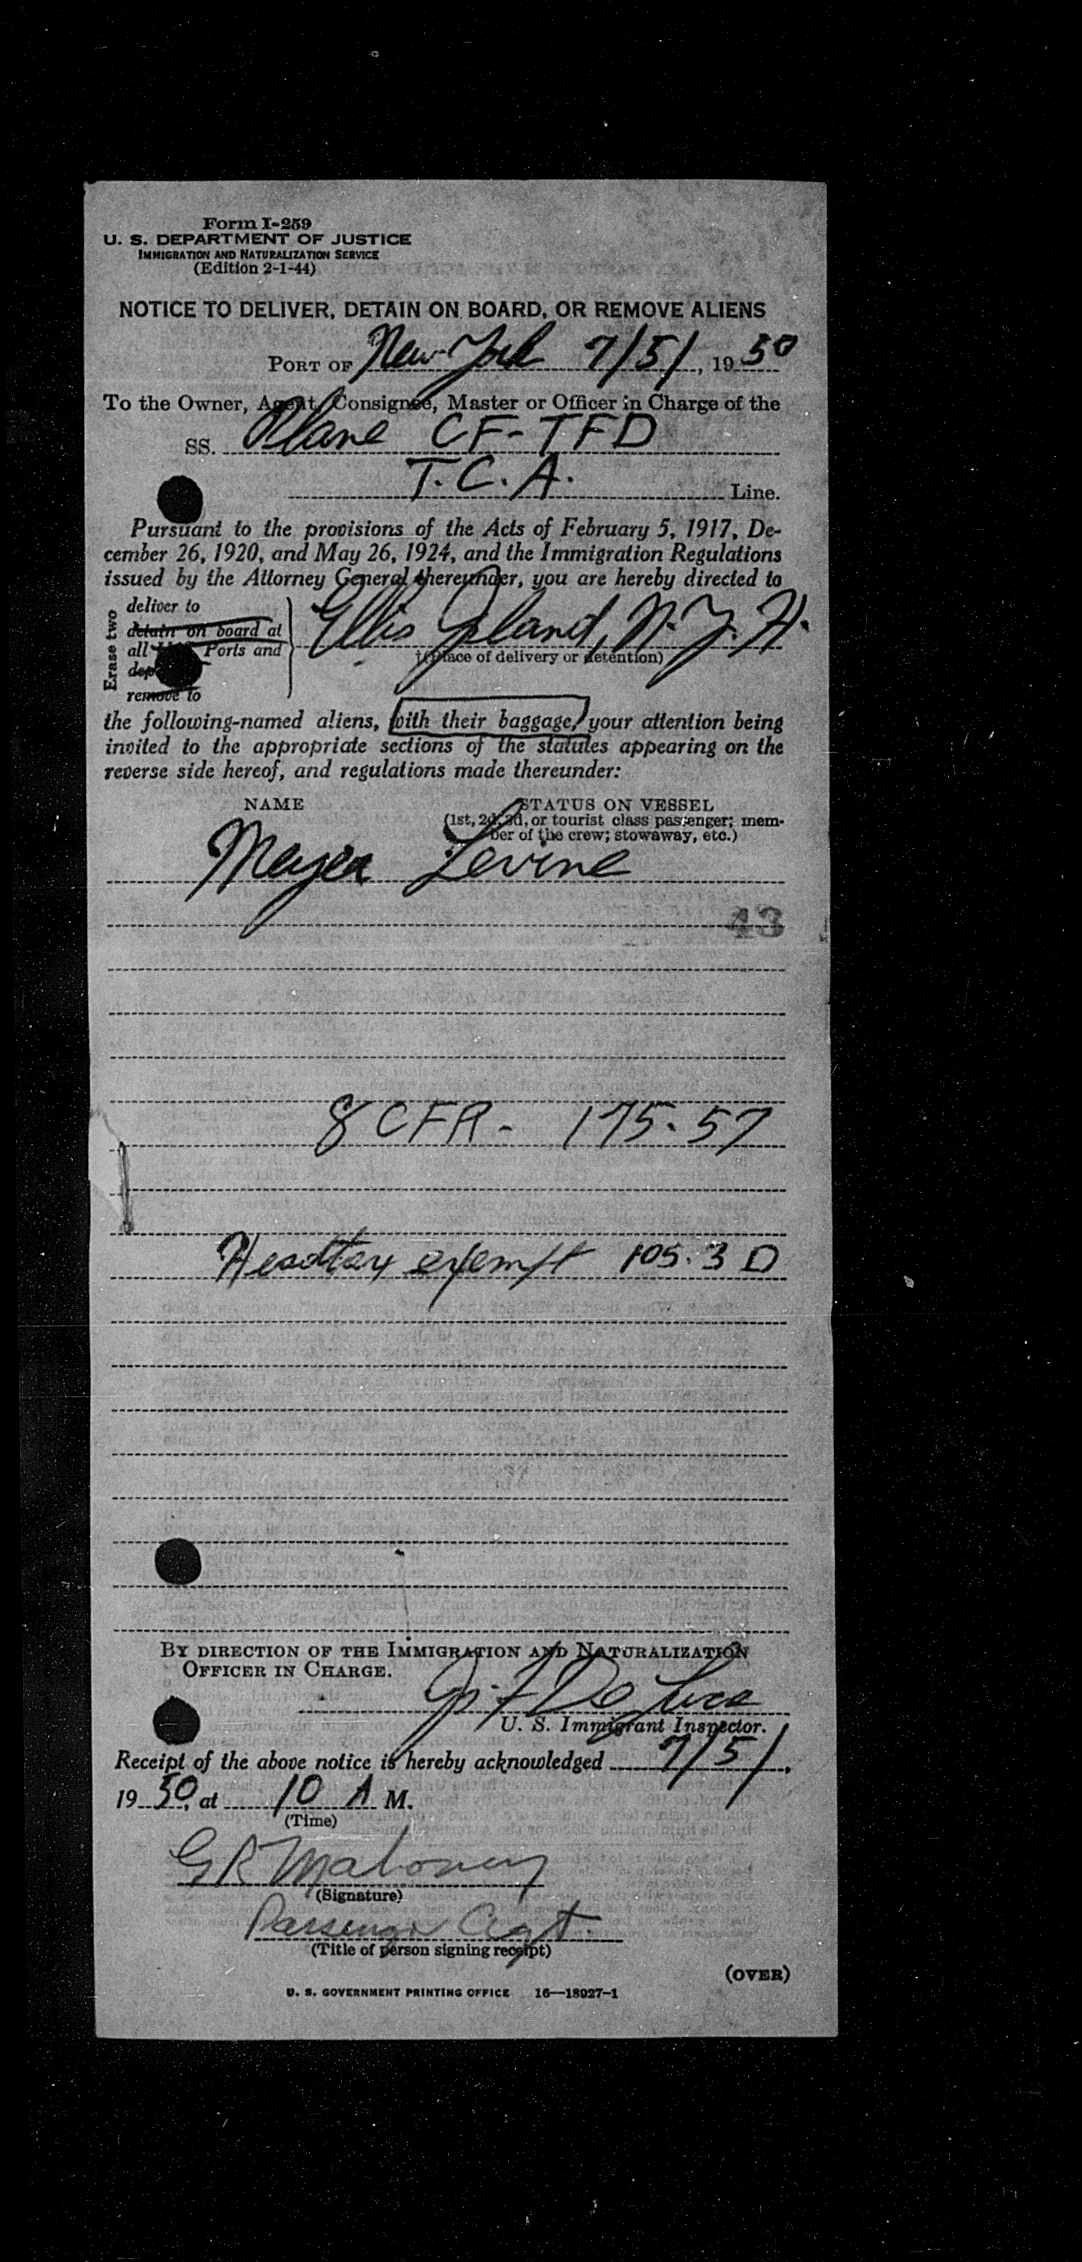 Form I-259
U. S. DEPARTMENT OF JUSTICE
IMMIGRATION AND NATURALIZATION SERVICE
(Edition 2-1-44)
NOTICE TO DELIVER, DETAIN ON BOARD, OR REMOVE ALIENS
PORT OF New York 7/5/, 1950
To the Owner, Agent, Consignee, Master or Officer in Charge of the
SS. Plane CF-TFD
T.C.A. Line.
Pursuant to the provisions of the Acts of February 5, 1917, De-
cember 26, 1920, and May 26, 1924, and the Immigration Regulations
issued by the Attorney General thereunder, you are hereby directed to
Erase two
deliver to
detain on board at
all Ports and
remove to
Ellis Island, N.Y.H.
(Place of delivery or detention)
the following-named aliens, with their baggage, your attention being
invited to the appropriate sections of the statutes appearing on the
reverse side hereof, and regulations made thereunder:
NAME STATUS ON VESSEL
(1st, 2d, 3d, or tourist class passenger; mem-
ber of the crew; stowaway, etc.)
Meyer Levine
43
8 CFR - 175.57
Headtax exempt 105.3 D
BY DIRECTION OF THE IMMIGRATION AND NATURALIZATION
OFFICER IN CHARGE.
De Luca
U. S. Immigrant Inspector.
Receipt of the above notice is hereby acknowledged 7/5/,
1950, at 10 A M.
(Time)
G R Mahoney
(Signature)
Passenger Agt.
(Title of person signing receipt)
(OVER)
U. S. GOVERNMENT PRINTING OFFICE 16—18027-1